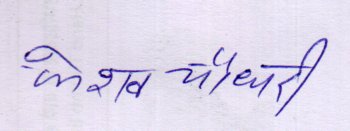 केशव चौधरी